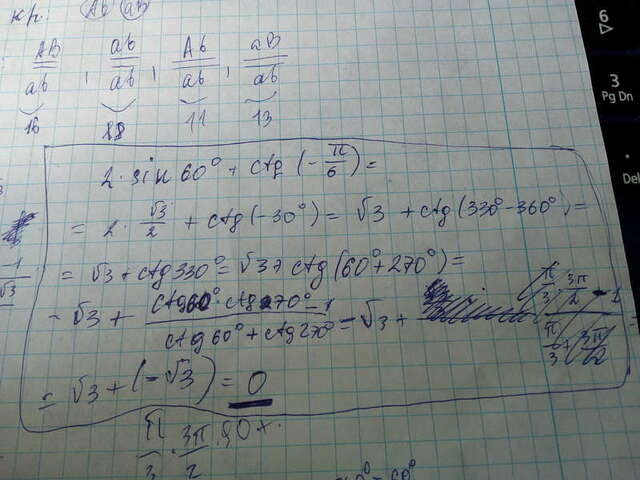 кр. Ab aB
AB ab Ab aB
ab , ab , ab , ab
16 11 13
2 · sin 60° + ctg (-π/6) =
= 2 · √3/2 + ctg(-30°) = √3 + ctg(330° - 360°) =
= √3 + ctg 330° = √3 + ctg(60° + 270°) =
= √3 + (ctg60° · ctg270° - 1)/(ctg60° + ctg270°) = √3 +
π/3 · 3π/2 - 1
π/3 + 3π/2
= √3 + (-√3) = 0
π/3 · 3π/2
-1/√3
6
3
Pg Dn
Del